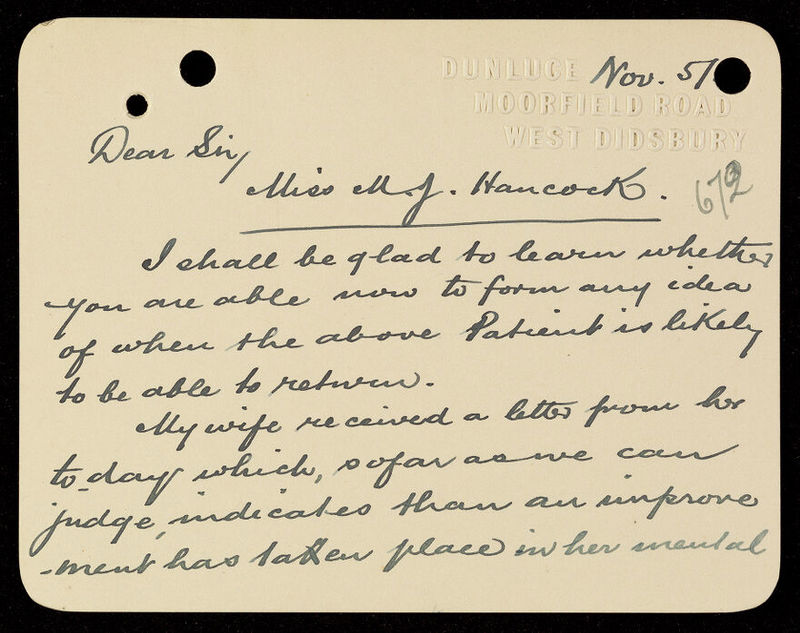 DUNLUCE Nov. 5/
MOORFIELD ROAD
WEST DIDSBURY
Dear Sir,
Miss M. J. Hancock. 672
I shall be glad to learn whether
you are able now to form any idea
of when the above Patient is likely
to be able to return.
My wife received a letter from her
to-day which, so far as we can
judge, indicates than an improve
-ment has taken place in her mental